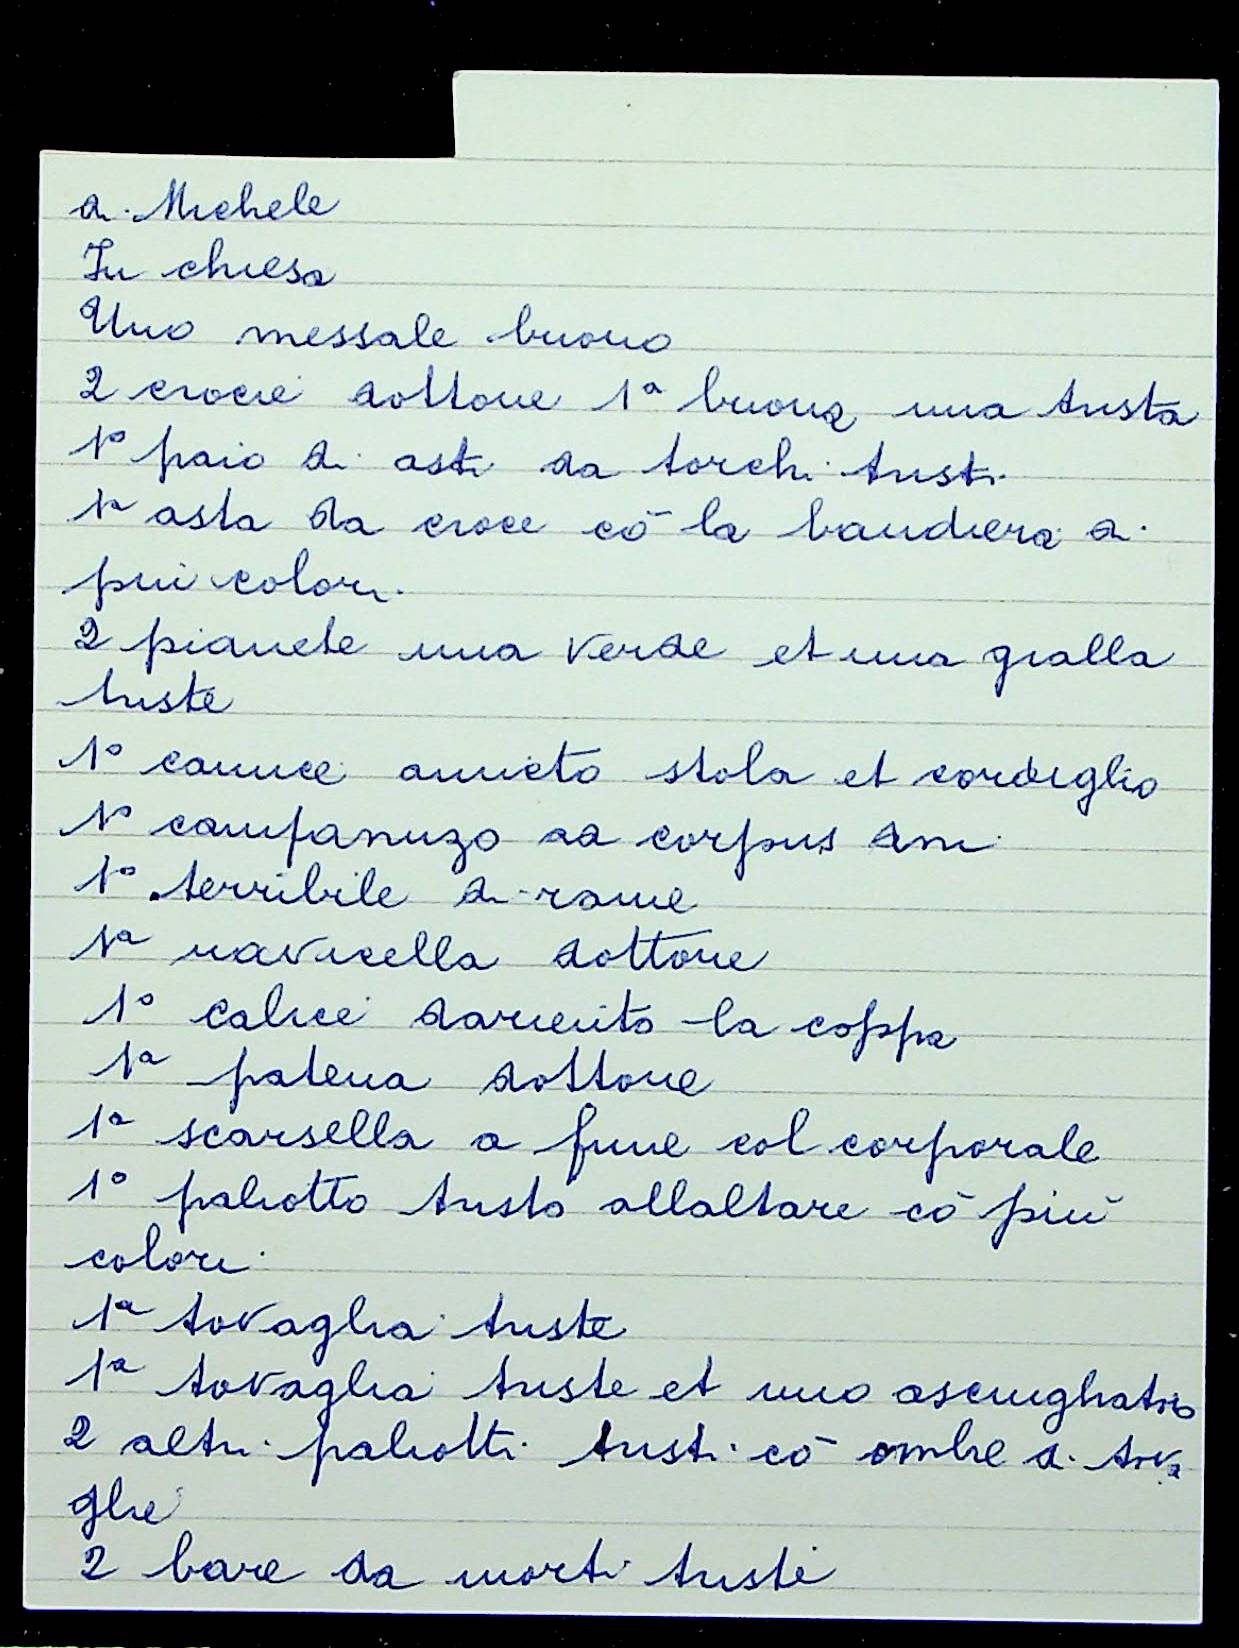 di Michele
In chiesa
Uno messale buono
2 crocie dottone 1ª buona una trista
1º paio di asti da torchi tristi
1ª asta da croce cō la bandiera di
piu colori
2 pianete una verde et una gialla
triste
1º camice amicto stola et cordiglio
1º campanuzo ad corpus dni
1º terribile di rame
1ª navicella dottone
1º calice dariento la coppa
1ª patena dottone
1ª scarsella a fune col corporale
1º paliotto tristo allaltare cō più
colori
1ª tovaglia triste
1ª tovaglia triste et uno asciughatoio
2 altri paliotti tristi cō ombre di tova
glie
2 bare da morti triste